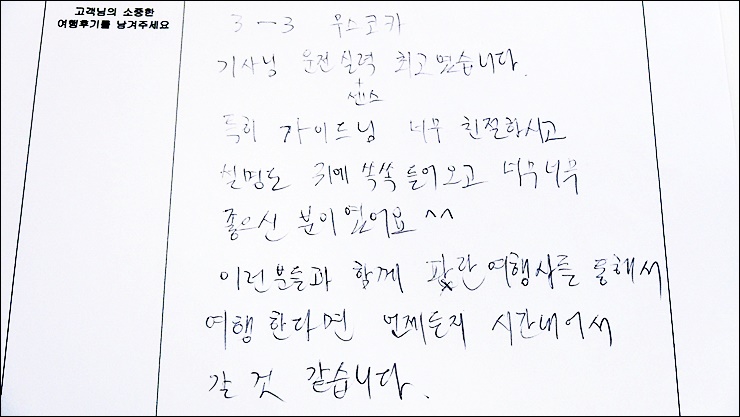 고객님의 소중한
여행후기를 남겨주세요
3-3 무스코카
기사님 운전실력 최고였습니다.
+
센스
특히 가이드님 너무 친절하시고
설명도 귀에 쏙쏙 들어오고 너무너무
좋으신 분이였어요 ^^
이런분들과 함께 파란여행사를 통해서
여행 한다면 언제든지 시간내어서
갈 것 같습니다.